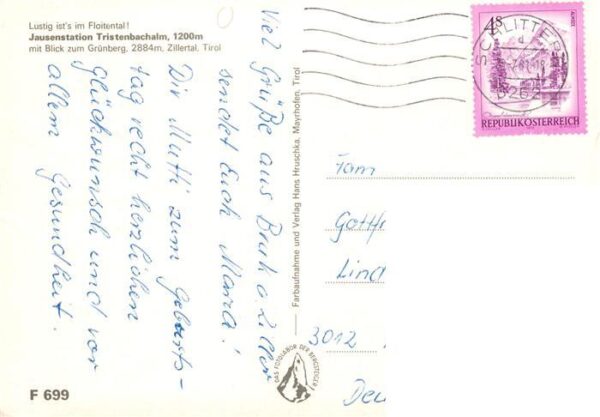 Lustig ist's im Floitental!
Jausenstation Tristenbachalm, 1200m
mit Blick zum Grünberg, 2884m, Zillertal, Tirol
Viel Grüße aus Bruk a. Ziller
sendet Euch Maria!
Dir Mutti zum Geburts-
tag recht herzlichen
Glückwunsch und vor
allem Gesundheit.
Farbaufnahme und Verlag Hans Hruschka, Mayrhofen, Tirol
4S
REPUBLIK ÖSTERREICH
SCHLITTERS
6262
Fam
Gottf
Lind
3012
Deu
DAS FOTOLABOR DER BERGSTEIGER
F 699